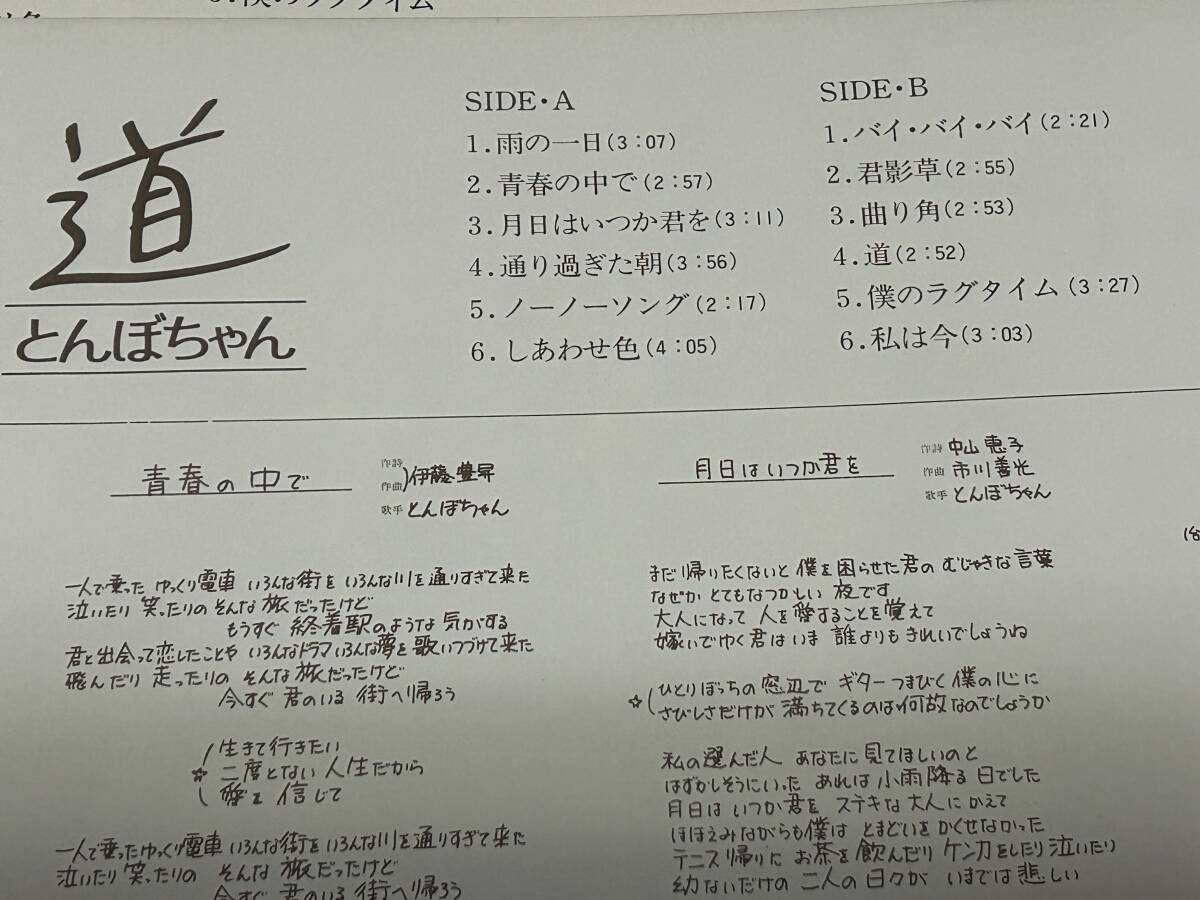 5.僕のラグタイム
道
とんぼちゃん
SIDE・A
1.雨の一日(3:07)
2.青春の中で(2:57)
3.月日はいつか君を(3:11)
4.通り過ぎた朝(3:56)
5.ノーノーソング(2:17)
6.しあわせ色(4:05)
SIDE・B
1.バイ・バイ・バイ(2:21)
2.君影草(2:55)
3.曲り角(2:53)
4.道(2:52)
5.僕のラグタイム(3:27)
6.私は今(3:03)
青春の中で
作詩
作曲 伊藤豊昇
歌手 とんぼちゃん
一人で乗った ゆっくり電車 いろんな街を いろんな川を通りすぎて来た
泣いたり 笑ったりの そんな 旅だったけど
もうすぐ 終着駅のような 気がする
君と出会って恋したことや いろんなドラマいろんな夢を 歌いつづけて来た
飛んだり 走ったりの そんな 旅だったけど
今すぐ 君のいる 街へ帰ろう
生きて行きたい
☆ 二度とない 人生だから
愛を 信じて
一人で乗ったゆっくり電車 いろんな街を いろんな川を通りすぎて来た
泣いたり 笑ったりの そんな 旅だったけど
今すぐ 君のいる 街へ帰ろう
月日はいつか君を
作詩 中山恵子
作曲 市川善光
歌手 とんぼちゃん
まだ帰りたくないと 僕を困らせた君の むじゃきな言葉
なぜか とてもなつかしい 夜です
大人になって 人を愛することを覚えて
嫁いでゆく君はいま 誰よりもきれいでしょうね
ひとりぼっちの窓辺で ギターつまびく 僕の心に
☆ さびしさだけが 満ちてくるのは何故なのでしょうか
私の選んだ人 あなたに見てほしいのと
はずかしそうにいった あれは 小雨降る 日でした
月日は いつか君を ステキな大人に かえて
ほほえみながらも僕は とまどいを かくせなかった
テニス帰りに お茶を飲んだり ケンカをしたり 泣いたり
幼ないだけの 二人の日々が いまでは悲しい